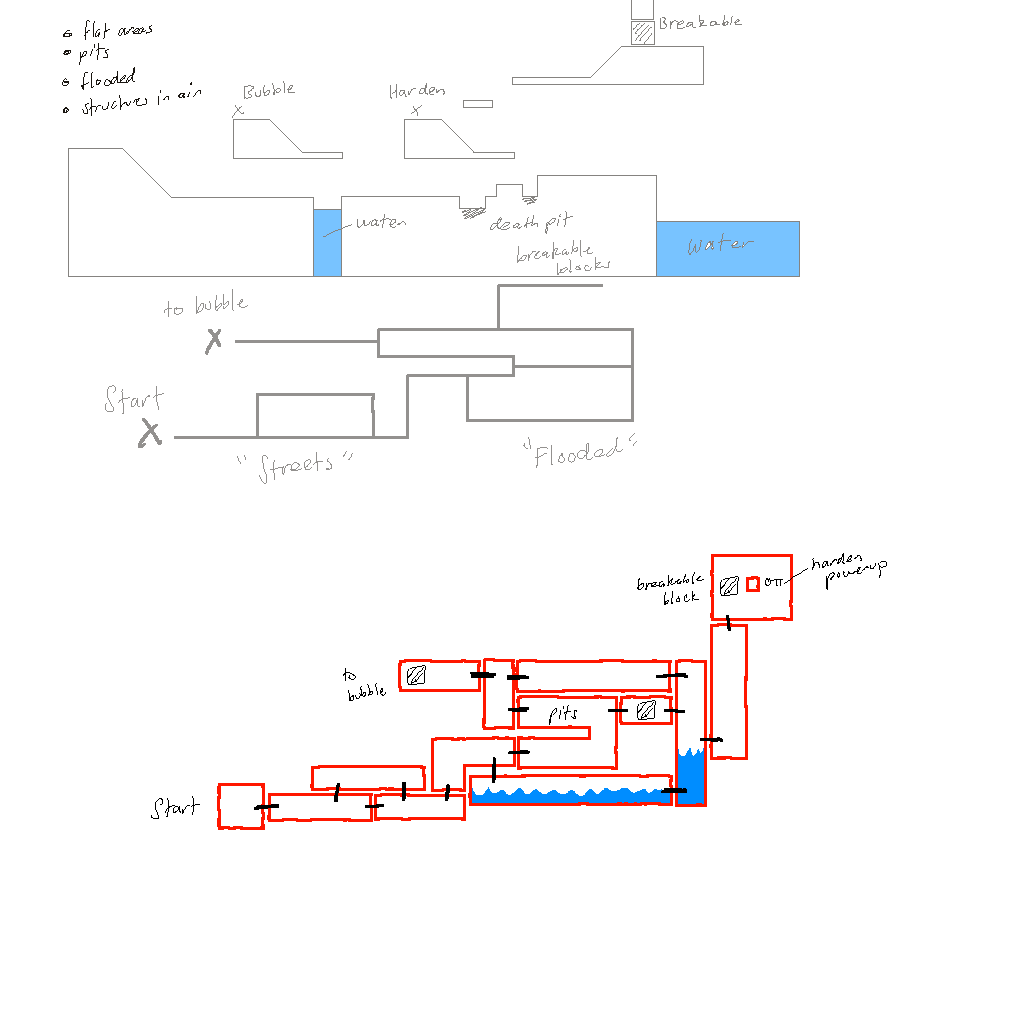 flat areas
pits
flooded
structures in air
Breakable
Bubble
x
Harden
x
water
death pit
breakable
blocks
Water
to bubble
X
Start
X
"Streets"
"Flooded"
harden
powerup
breakable
block
to
bubble
pits
Start